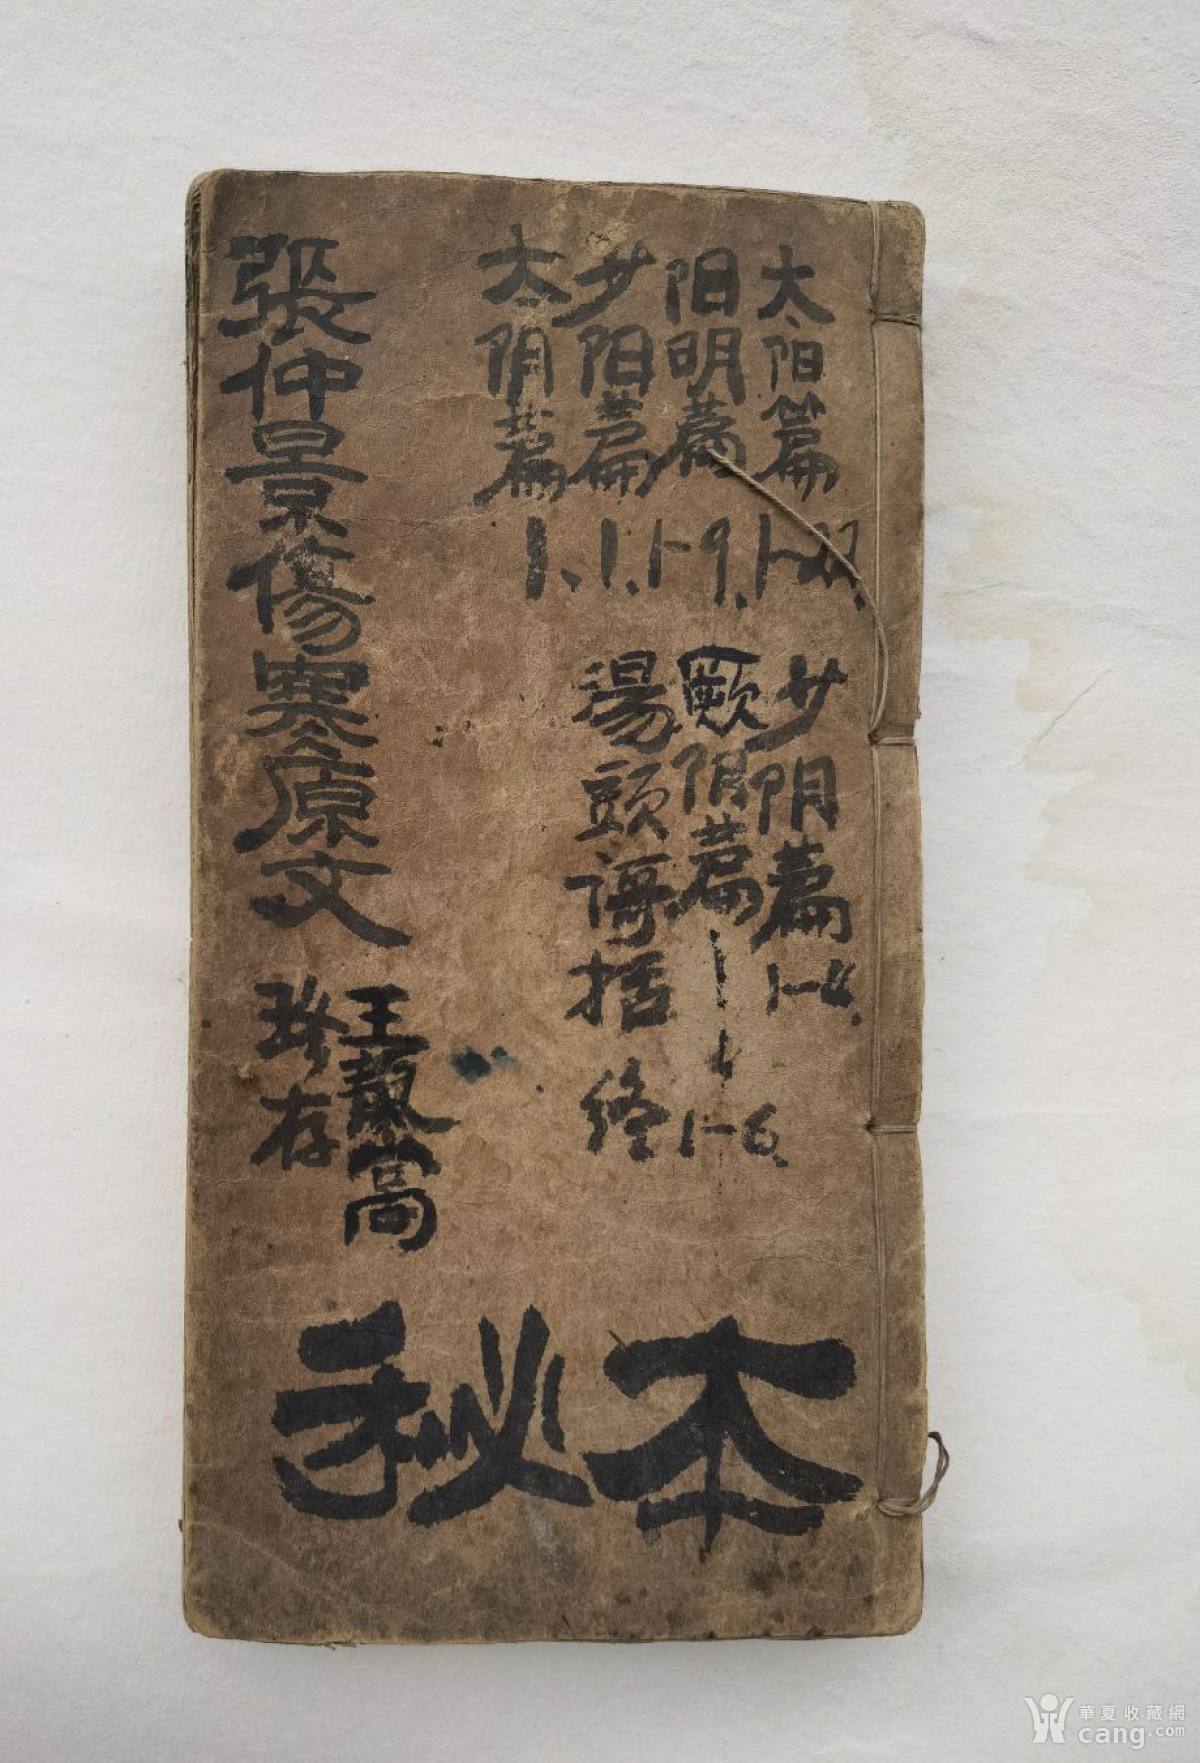 太阳篇
阳明篇 1-9.
少阳篇 1.
太阴篇 1.
少阴篇 1-4.
厥阴篇 1-6.
湯頭謌括 终
張仲景傷寒原文
王 高
珍存
本秘
華夏收藏網
cang.com